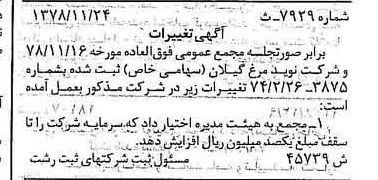 شماره ۷۹۲۹ـ ث ۱۳۷۸/۱۱/۲۴
آگهی تغییرات
برابر صورتجلسه مجمع عمومی فوق‌العاده مورخه ۷۸/۱۱/۱۶
و شرکت نوید مرغ گیلان (سهامی خاص) ثبت شده بشماره
۳۸۷۵ـ ۷۴/۲/۲۶ تغییرات زیر در شرکت مذکور بعمل آمده
است:
۱ـ مجمع به هیئت مدیره اختیار داد که سرمایه شرکت را تا
سقف مبلغ یکصد میلیون ریال افزایش دهد.
ش ۴۵۷۳۹ مسئول ثبت شرکتهای ثبت رشت